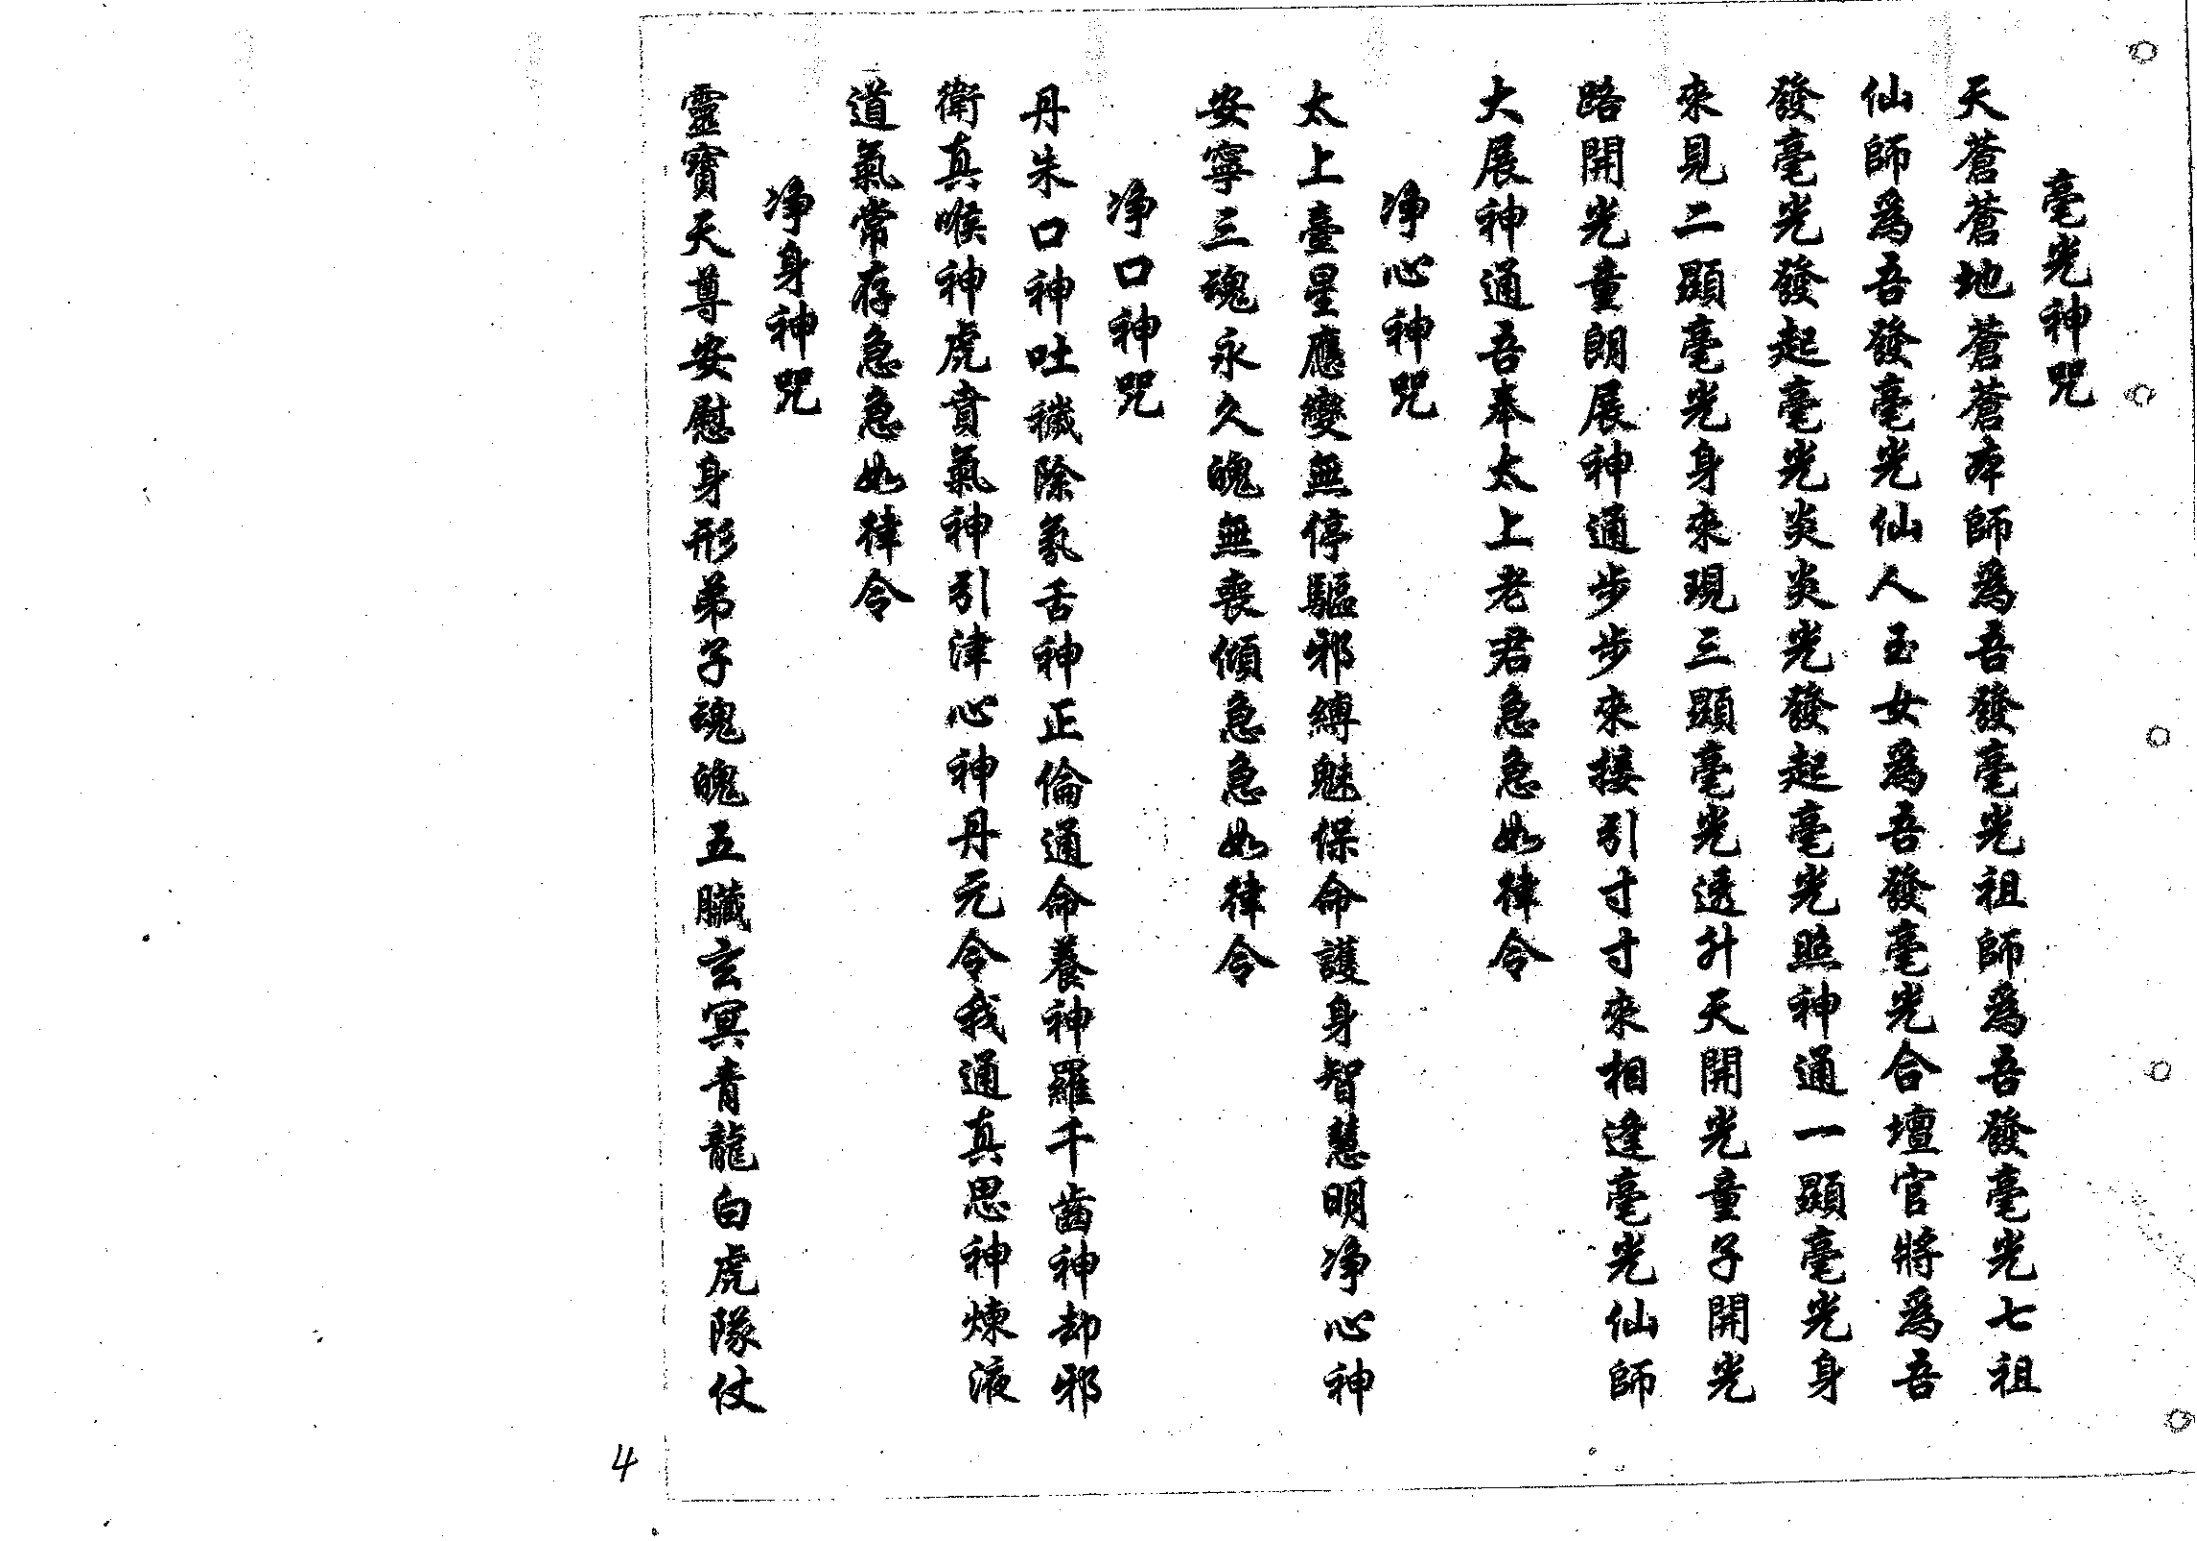 毫光神咒
天蒼蒼地蒼蒼本師爲吾發毫光祖師爲吾發毫光七祖
仙師爲吾發毫光仙人玉女爲吾發毫光合壇官將爲吾
發毫光發起毫光炎炎光發起毫光照神通一顯毫光身
來見二顯毫光身來現三顯毫光透升天開光童子開光
路開光童朗展神通步步來接引寸寸來相逢毫光仙師
大展神通吾奉太上老君急急如律令
净心神咒
太上臺星應變無停驅邪縛魅保命護身智慧明净心神
安寧三魂永久魄無喪傾急急如律令
净口神咒
丹朱口神吐穢除氣舌神正倫通命養神羅千齒神却邪
衛真喉神虎賁氣神引津心神丹元令我通真思神煉液
道氣常存急急如律令
净身神咒
靈寶天尊安慰身形弟子魂魄五臟玄冥青龍白虎隊仗
4